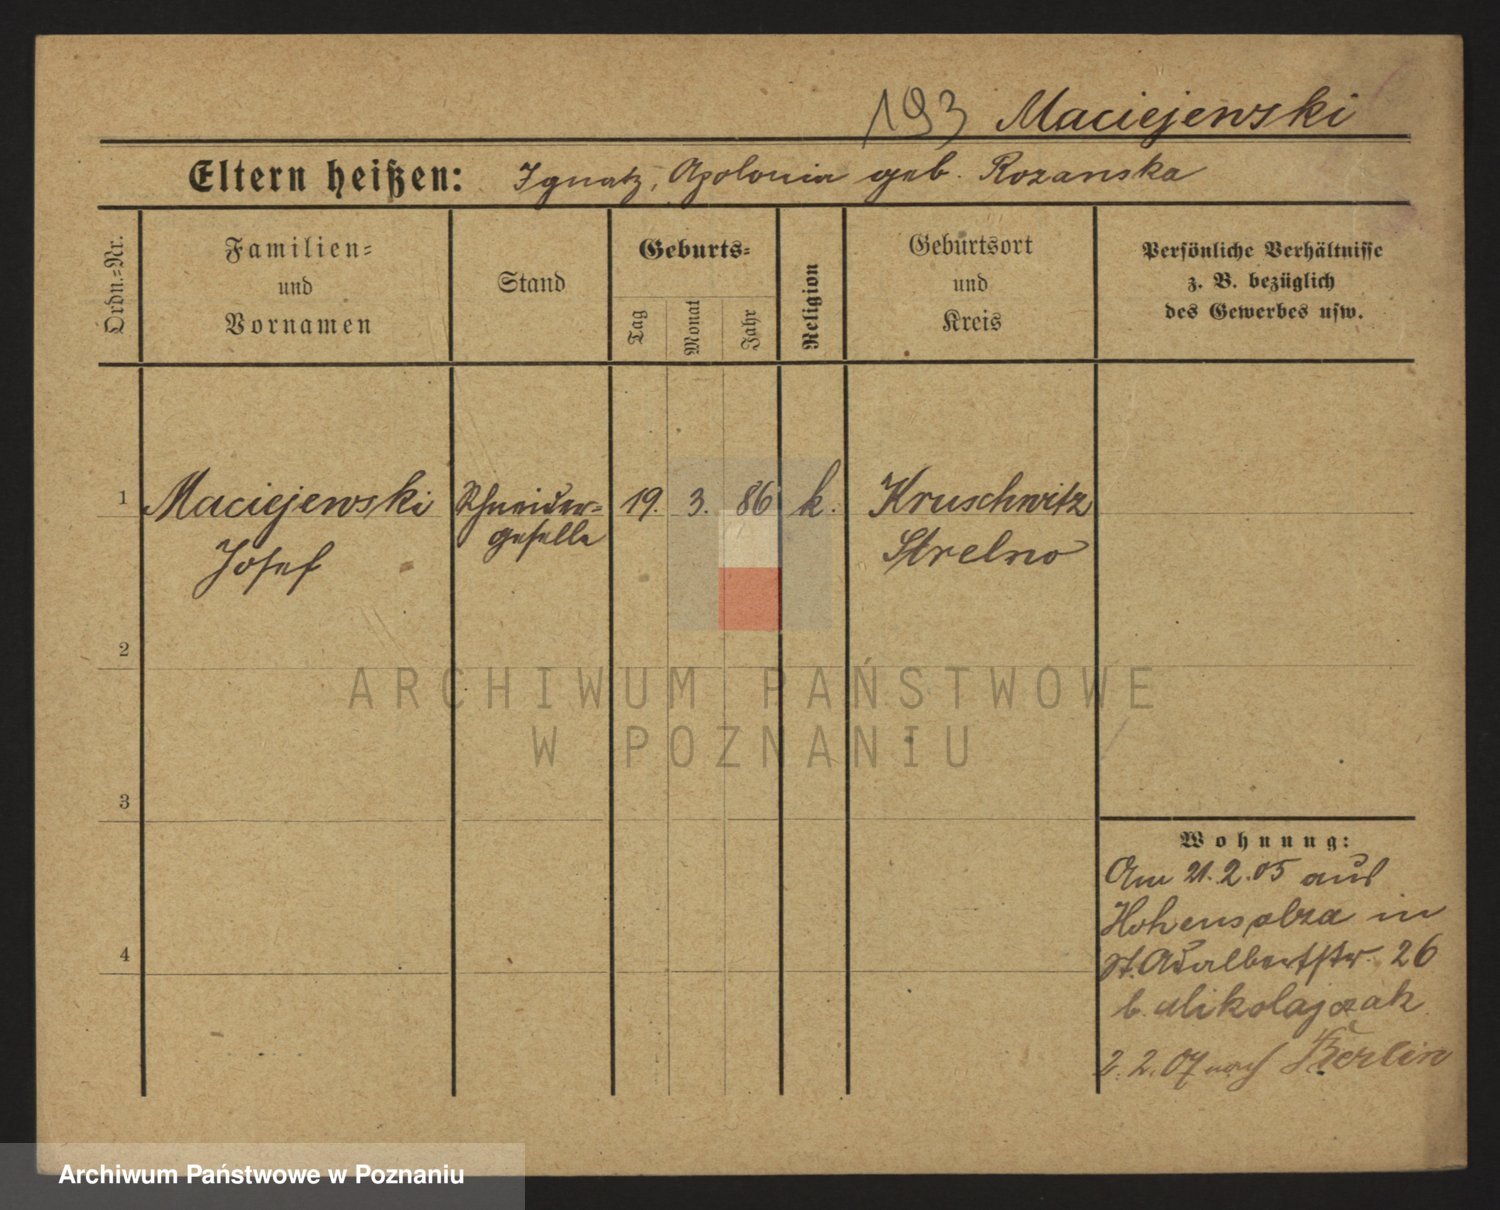 193 Maciejewski
Eltern heißen: Ignatz, Apolonia geb. Rozanska
Ordn.=Nr.
Familien=
und
Vornamen
Stand
Geburts=
Tag
Monat
Jahr
Religion
Geburtsort
und
Kreis
Persönliche Verhältnisse
z. B. bezüglich
des Gewerbes usw.
1 Maciejewski Schneider= 19. 3. 86 k. Kruschwitz
Josef geselle Strelno
2
ARCHIWUM PAŃSTWOWE
W POZNANIU
3
Wohnung:
Am 21.2.05 aus
Hohensalza in
St. Adalbertstr. 26
b. Mikolajczak
4
2.2.07 nach Berlin
Archiwum Państwowe w Poznaniu